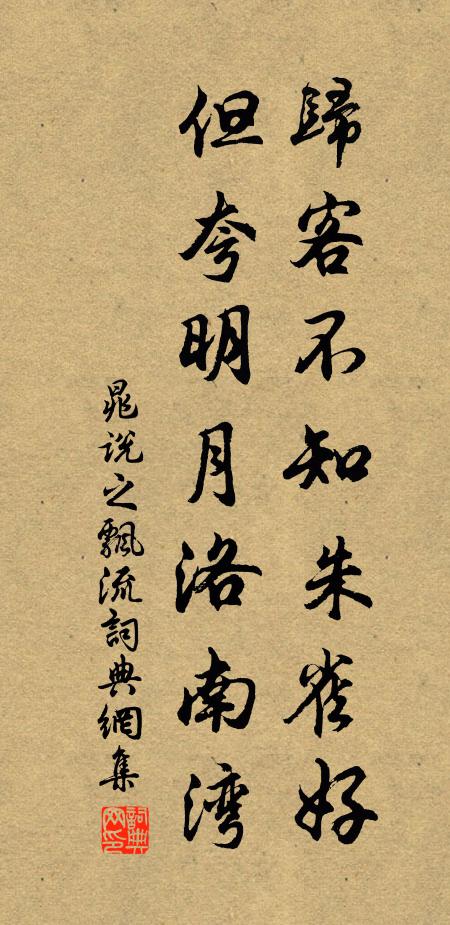 歸客不知朱雀好
但夸明月洛南湾
晁说之飄流詞典網集
詞典網印